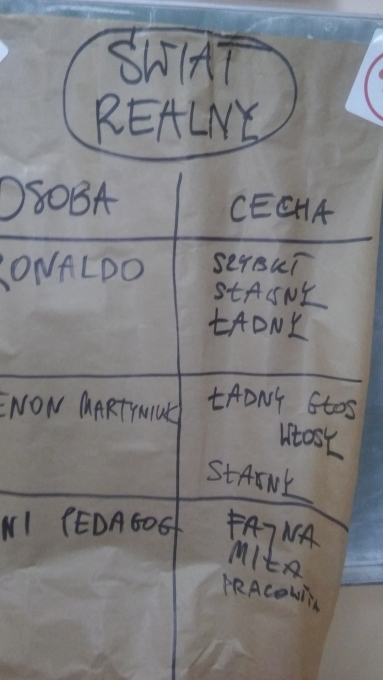 ŚWIAT
REALNY
OSOBA CECHA
RONALDO SZYBKI
SŁAWNY
ŁADNY
ENON MARTYNIUK ŁADNY GŁOS
WŁOSY
SŁAWNY
NI PEDAGOG FAJNA
MIŁA
PRACOWITA